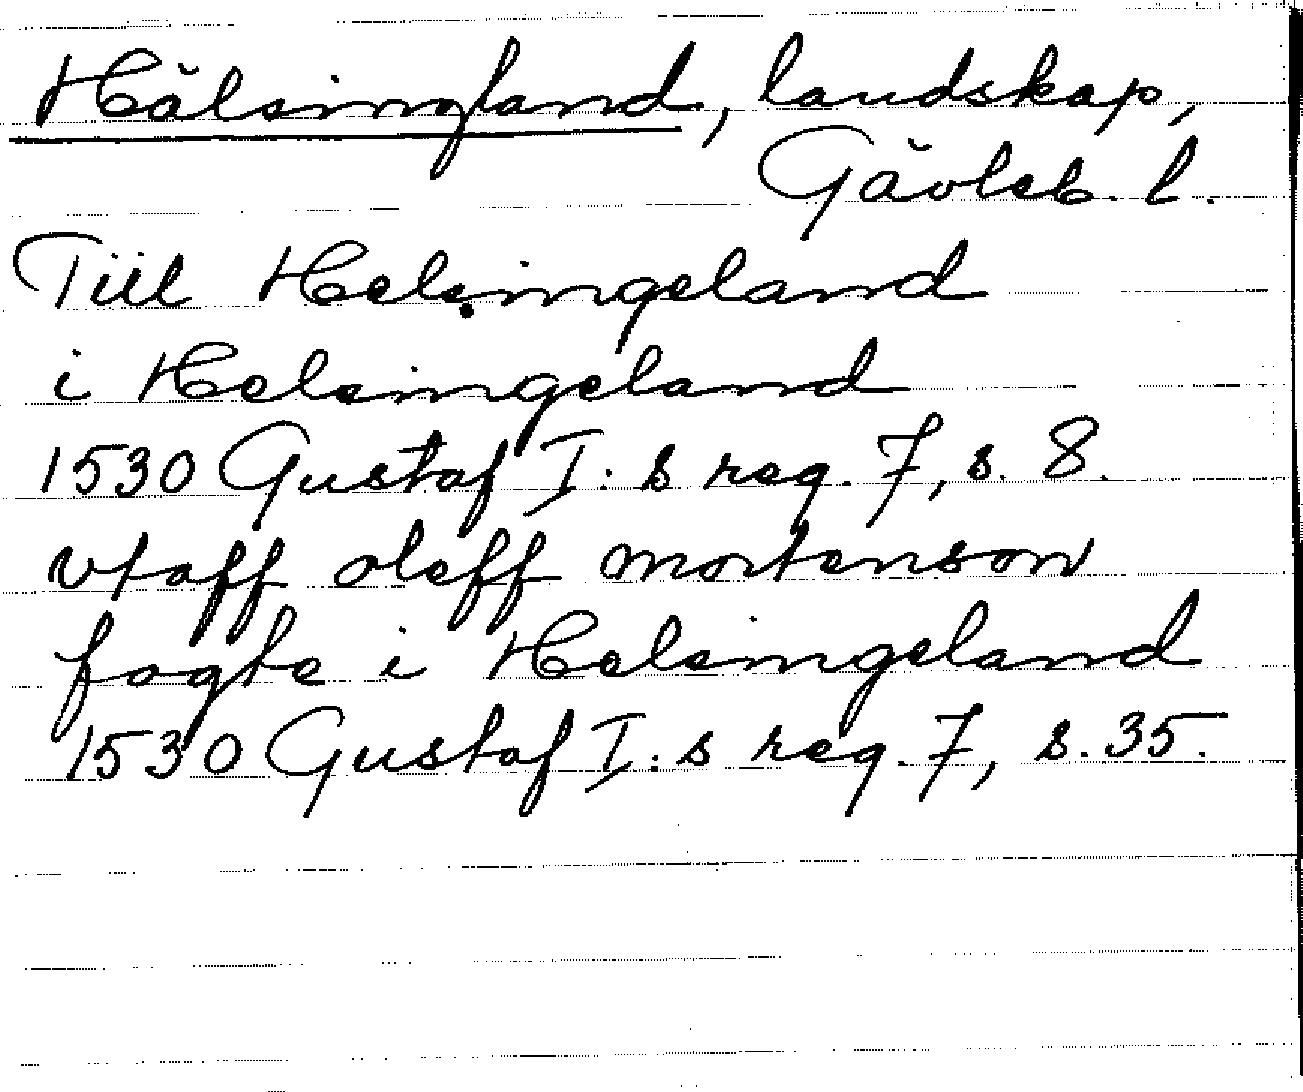 Hälsingland, landskap,
Gävleb. l.
Till Helsingeland
i Helsingeland
1530 Gustaf I:s reg. 7, s. 8.
vtaff oleff mortenson
fogte i Helsingeland
1530 Gustaf I:s reg. 7, s. 35.